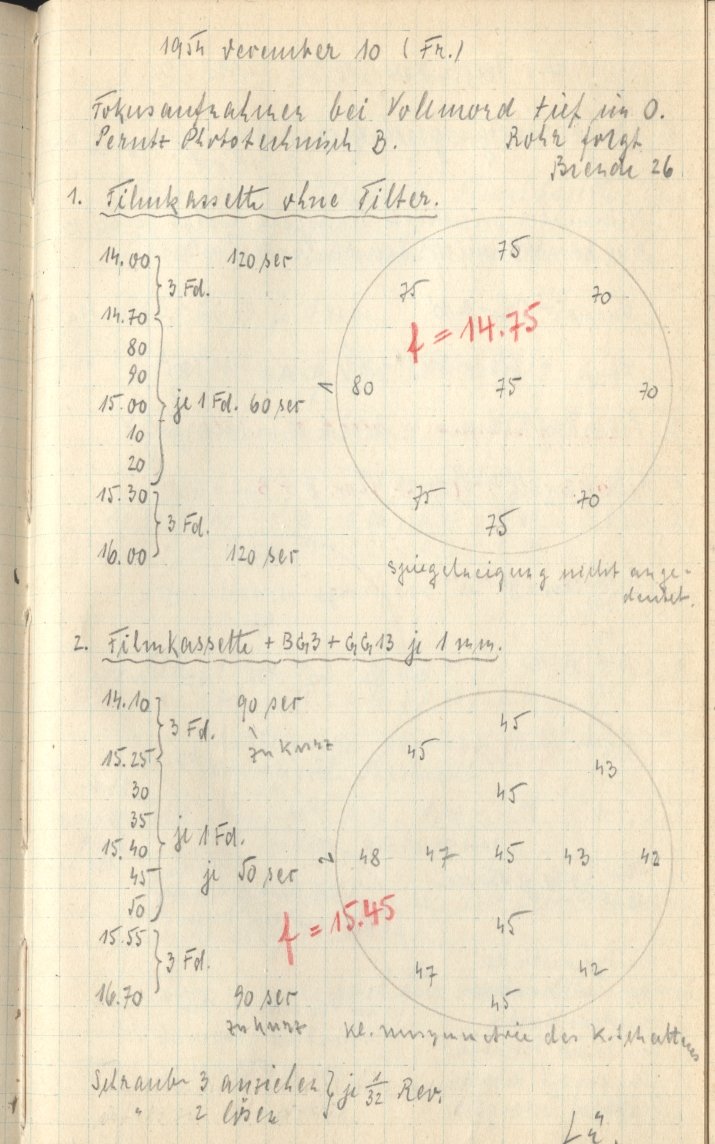 1954 December 10 (Fr.)
Fokusaufnahmen bei Vollmond tief im O.
Perutz Phototechnisch B. Rohr folgt
Blende 26
1. Filmkassette ohne Filter.
14.00 120 sec
3 Fd.
14.70
80
90
15.00 je 1 Fd. 60 sec
10
20
15.30
3 Fd.
16.00 120 sec
75
75 70
f = 14.75
80 75 70
75 70
75
Spiegelneigung nicht ange-
deutet.
2. Filmkassette + BG3 + GG13 je 1 mm.
14.10 90 sec
3 Fd. zu kurz
15.25
30
35
15.40 je 1 Fd.
45 je 50 sec
50
15.55
3 Fd.
16.70 90 sec
zu kurz
45
45 43
45
48 47 45 43 42
f = 15.45
45
47 42
45
kl. Unsymmetrie des K. Schattens
Schraube 3 anziehen } je 1/32 Rev.
" 2 lösen